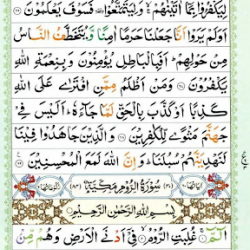 لِيَكْفُرُوا بِمَا آتَيْنَاهُمْ وَلِيَتَمَتَّعُوا فَسَوْفَ يَعْلَمُونَ
أَوَلَمْ يَرَوْا أَنَّا جَعَلْنَا حَرَمًا آمِنًا وَيُتَخَطَّفُ النَّاسُ
مِنْ حَوْلِهِمْ أَفَبِالْبَاطِلِ يُؤْمِنُونَ وَبِنِعْمَةِ اللَّهِ
يَكْفُرُونَ وَمَنْ أَظْلَمُ مِمَّنِ افْتَرَى عَلَى اللَّهِ
كَذِبًا أَوْ كَذَّبَ بِالْحَقِّ لَمَّا جَاءَهُ أَلَيْسَ فِي
جَهَنَّمَ مَثْوًى لِلْكَافِرِينَ وَالَّذِينَ جَاهَدُوا فِينَا
لَنَهْدِيَنَّهُمْ سُبُلَنَا وَإِنَّ اللَّهَ لَمَعَ الْمُحْسِنِينَ
سُورَةُ الرُّومِ مَكِّيَّةٌ
بِسْمِ اللَّهِ الرَّحْمَٰنِ الرَّحِيمِ
الم غُلِبَتِ الرُّومُ فِي أَدْنَى الْأَرْضِ وَهُمْ مِنْ